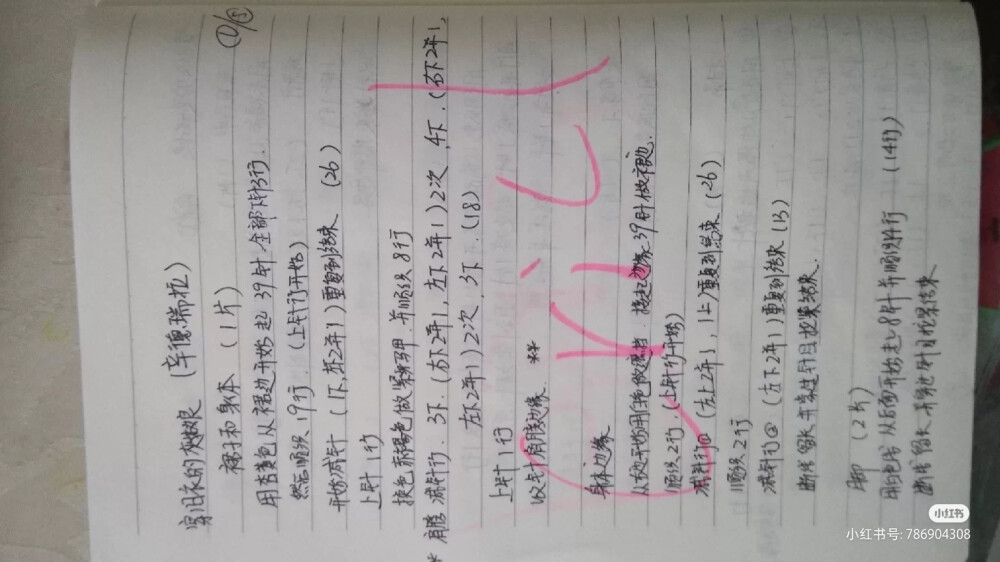 ①/⑤
穿旧衣的灰姑娘 (辛德瑞拉)
裙子和身体 (1片)
用杏黄色从裙边开始起39针,全部下针3行.
然后顺织19行 (上针行开始)
开始减针 (1下,左下2并1)重复到结束 (26)
上针1行
换色 赤褐色做紧身马甲.并顺织8行
* 肩膀,减针行.3下.(右下2并1,左下2并1)2次,4下.(右下2并1,
左下2并1)2次,3下.(18)
上针1行
收针肩膀边缘. **
身体边缘
从反面开始用 色做 . 挑起边缘39针做裙边.
顺织2行.(上针行开始)
减针行① (左上2并1,1上)重复到结束 (26)
顺织2行
减针行② (左下2并1)重复到结束 (13)
断线留长并穿过针目拉紧结束.
脚 (2片)
用白色线 从后面开始起8针并顺织14行 (14行)
断线留长并穿过针目拉紧结束
小红书
小红书号: 786904308